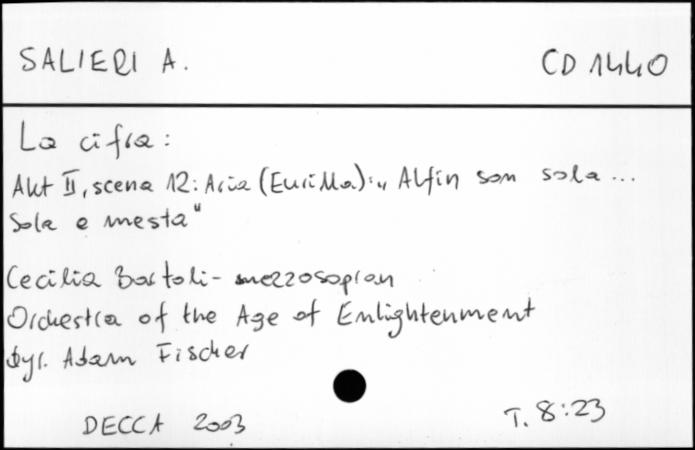 SALIERI A.
CD 1440
La cifra:
Akt II, scena 12: Aria (Eurilla): „Alfin son sola...
Sola e mesta"
Cecilia Bartoli - mezzosopran
Orchestra of the Age of Enlightenment
dyr. Adam Fischer
DECCA 2003
T. 8:23